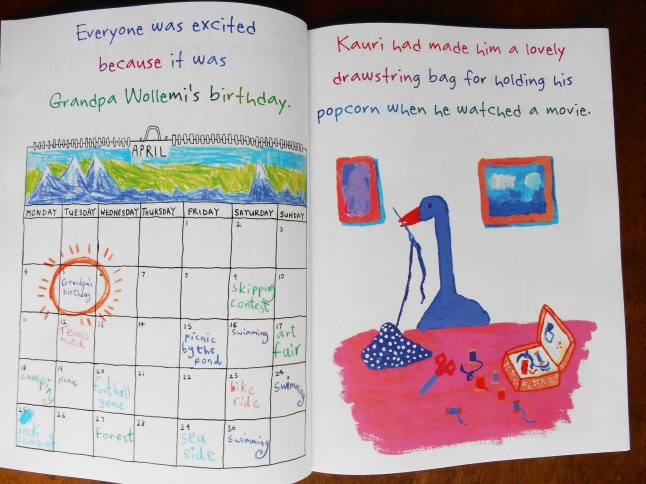 Everyone was excited
because it was
Grandpa Wollemi's birthday.
APRIL
MONDAY TUESDAY WEDNESDAY THURSDAY FRIDAY SATURDAY SUNDAY
1 2 3
4 5 6 7 8 9 10
Grandpa's
birthday
skipping
contest
11 12 13 14 15 16 17
Tennis
match
picnic
by the
pond
swimming
art
fair
18 19 20 21 22 23 24
camping
picnic
football
game
bike
ride
swimming
25 26 27 28 29 30
rock
forest
sea
side
swimming
Kauri had made him a lovely
drawstring bag for holding his
popcorn when he watched a movie.